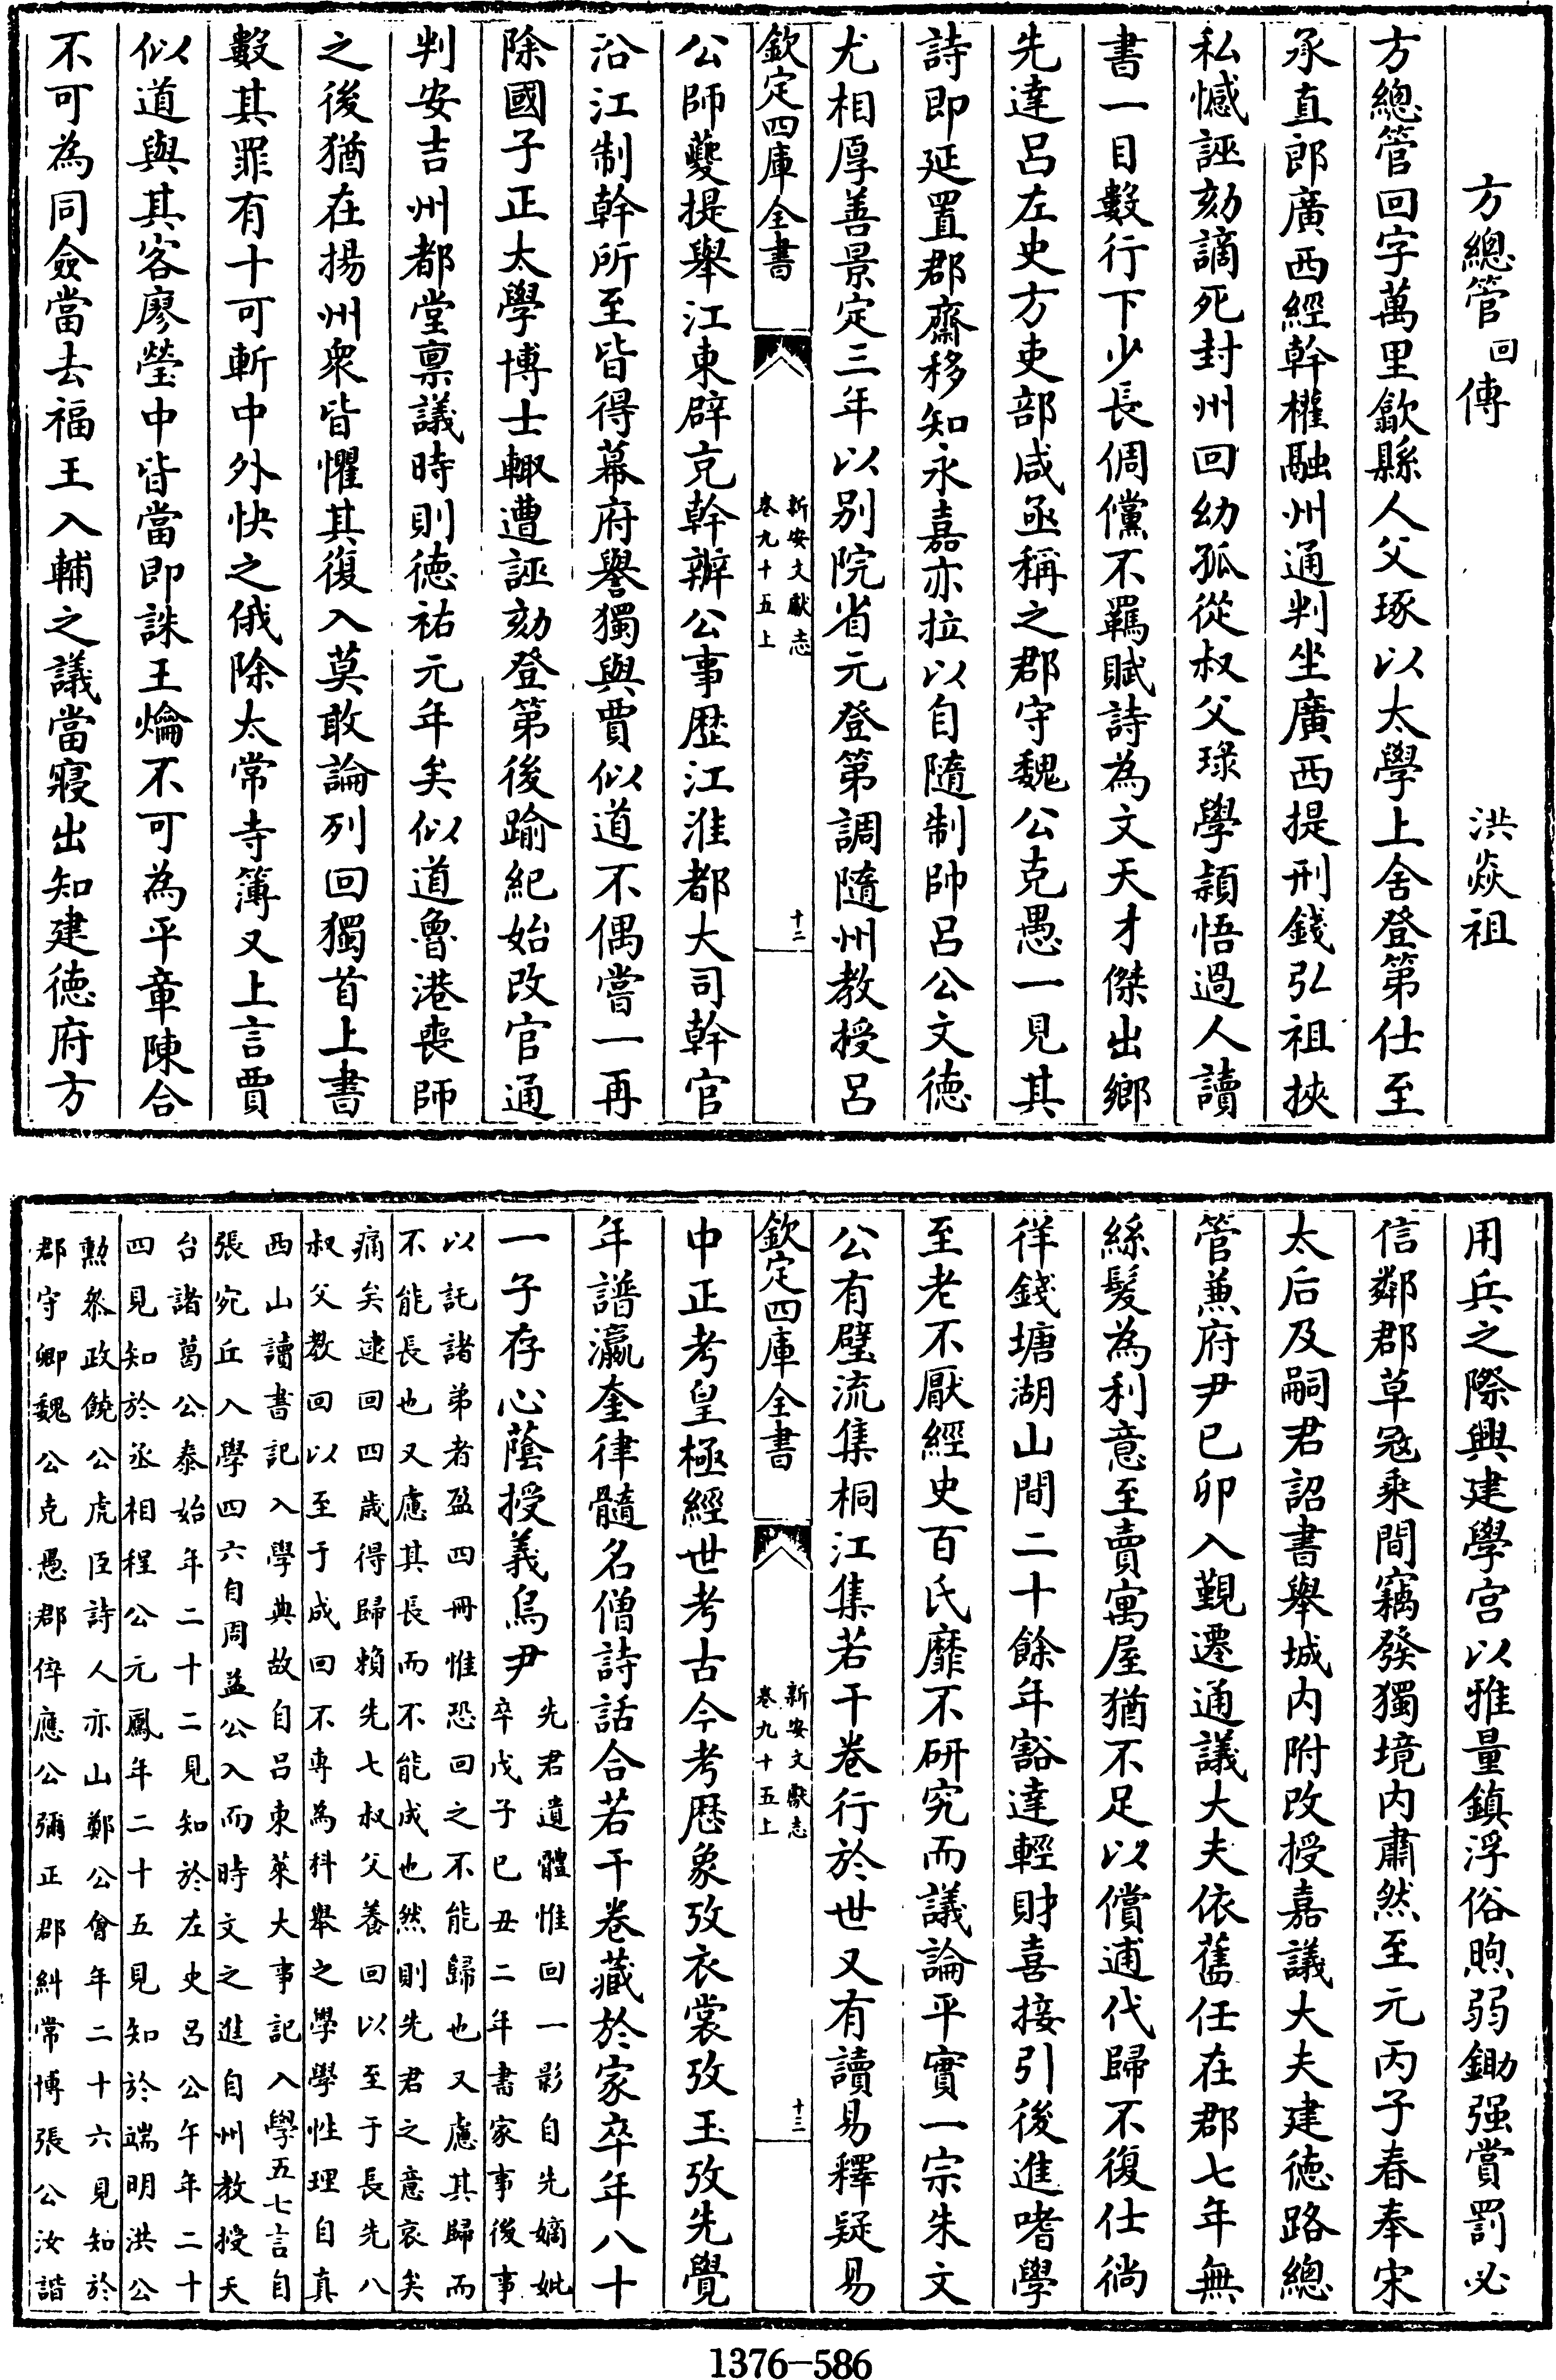 方總管回傳　洪焱祖
方總管回字萬里歙縣人父琢以太學上舍登第仕至
承直郎廣西經幹權融州通判坐廣西提刑錢弘祖挾
私憾誣劾謫死封州回幼孤從叔父瑑學頴悟過人讀
書一目數行下少長倜儻不羈賦詩為文天才傑出鄉
先達呂左史方吏部咸亟稱之郡守魏公克愚一見其
詩即延置郡齋移知永嘉亦拉以自隨制帥呂公文徳
尤相厚善景定三年以别院省元登第調隨州教授呂
欽定四庫全書
新安文獻志
卷九十五上
十二
公師夔提舉江東辟充幹辦公事歴江淮都大司幹官
沿江制幹所至皆得幕府譽獨與賈似道不偶嘗一再
除國子正太學博士輙遭誣劾登第後踰紀始改官通
判安吉州都堂禀議時則徳祐元年矣似道魯港喪師
之後猶在揚州衆皆懼其復入莫敢論列回獨首上書
數其罪有十可斬中外快之俄除太常寺簿又上言賈
似道與其客廖瑩中皆當即誅王爚不可為平章陳合
不可為同僉當去福王入輔之議當寢出知建徳府方
用兵之際興建學宫以雅量鎮浮俗煦弱鋤强賞罰必
信鄰郡草冦乘間竊發獨境内肅然至元丙子春奉宋
太后及嗣君詔書舉城内附改授嘉議大夫建徳路總
管兼府尹已卯入覲遷通議大夫依舊任在郡七年無
絲髪為利意至賣寓屋猶不足以償逋代歸不復仕徜
徉錢塘湖山間二十餘年豁達輕財喜接引後進嗜學
至老不厭經史百氏靡不研究而議論平實一宗朱文
公有璧流集桐江集若干卷行於世又有讀易釋疑易
欽定四庫全書
新安文獻志
卷九十五上
十三
中正考皇極經世考古今考歴象攷衣裳攷玉攷先覺
年譜瀛奎律髓名僧詩話合若干卷藏於家卒年八十
一子存心蔭授義烏尹
先君遺體惟回一影自先嫡妣
卒戊子巳丑二年書家事後事
以託諸弟者盈四冊惟恐回之不能歸也又慮其歸而
不能長也又慮其長而不能成也然則先君之意哀矣
痛矣逮回四歳得歸賴先七叔父養回以至于長先八
叔父教回以至于成回不専為科舉之學學性理自真
西山讀書記入學典故自呂東萊大事記入學五七言自
張宛丘入學四六自周益公入而時文之進自州教授天
台諸葛公泰始年二十二見知於左史呂公午年二十
四見知於丞相程公元鳳年二十五見知於端明洪公
勲叅政饒公虎臣詩人亦山鄭公會年二十六見知於
郡守卿魏公克愚郡倅應公彌正郡糾常博張公汝諧
1376—586